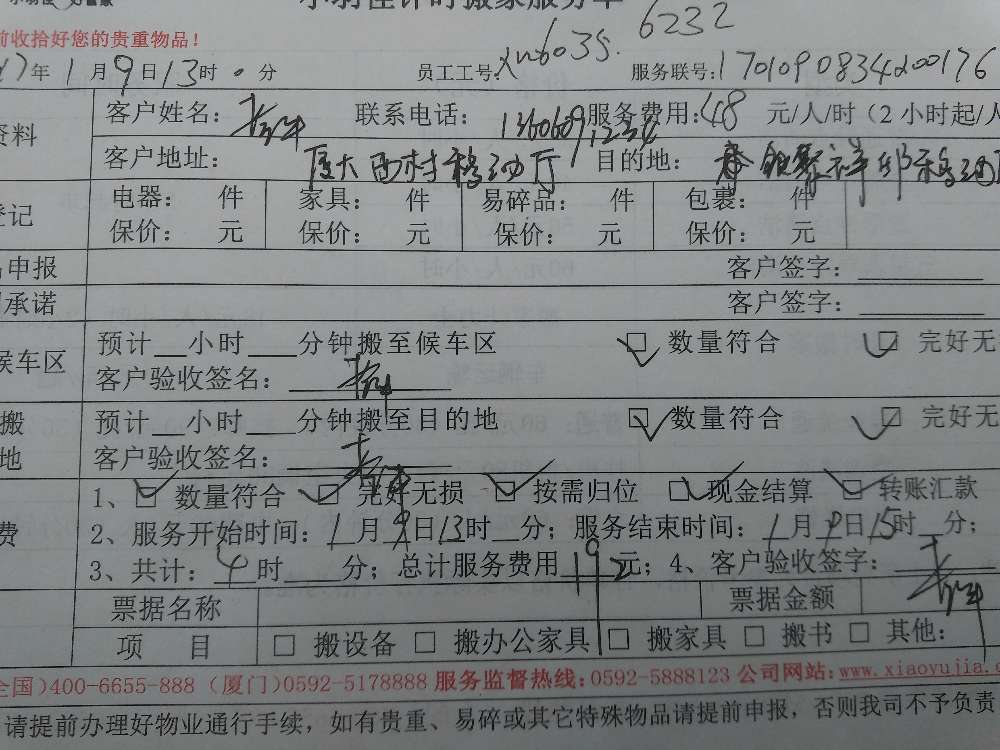 前收拾好您的贵重物品！
17年1月9日13时 分 员工工号:xn6035. 6232 服务联号:1701090834200176
资料 客户姓名： 联系电话： 服务费用:48 元/人/时（2小时起/人
客户地址： 厦大西村移动厅 目的地：
登记 电器： 件 家具： 件 易碎品： 件 包裹： 件
保价： 元 保价： 元 保价： 元 保价： 元
申报 客户签字：
承诺 客户签字：
候车区 预计__小时___分钟搬至候车区 ☑ 数量符合 ☑ 完好无
客户验收签名：
搬 预计__小时___分钟搬至目的地 ☑ 数量符合 ☑ 完好无
地 客户验收签名：
1、☑ 数量符合 ☑ 完好无损 ☑ 按需归位 ☑ 现金结算 ☑ 转账汇款
费 2、服务开始时间：1月9日13时__分；服务结束时间：1月9日15时__分；
3、共计：4时____分；总计服务费用192元；4、客户验收签字：
票据名称 票据金额
项 目 □ 搬设备 □ 搬办公家具 □ 搬家具 □ 搬书 □ 其他：
全国)400-6655-888 (厦门)0592-5178888 服务监督热线：0592-5888123 公司网站：www.xiaoyujia.c
请提前办理好物业通行手续，如有贵重、易碎或其它特殊物品请提前申报，否则我司不予负责